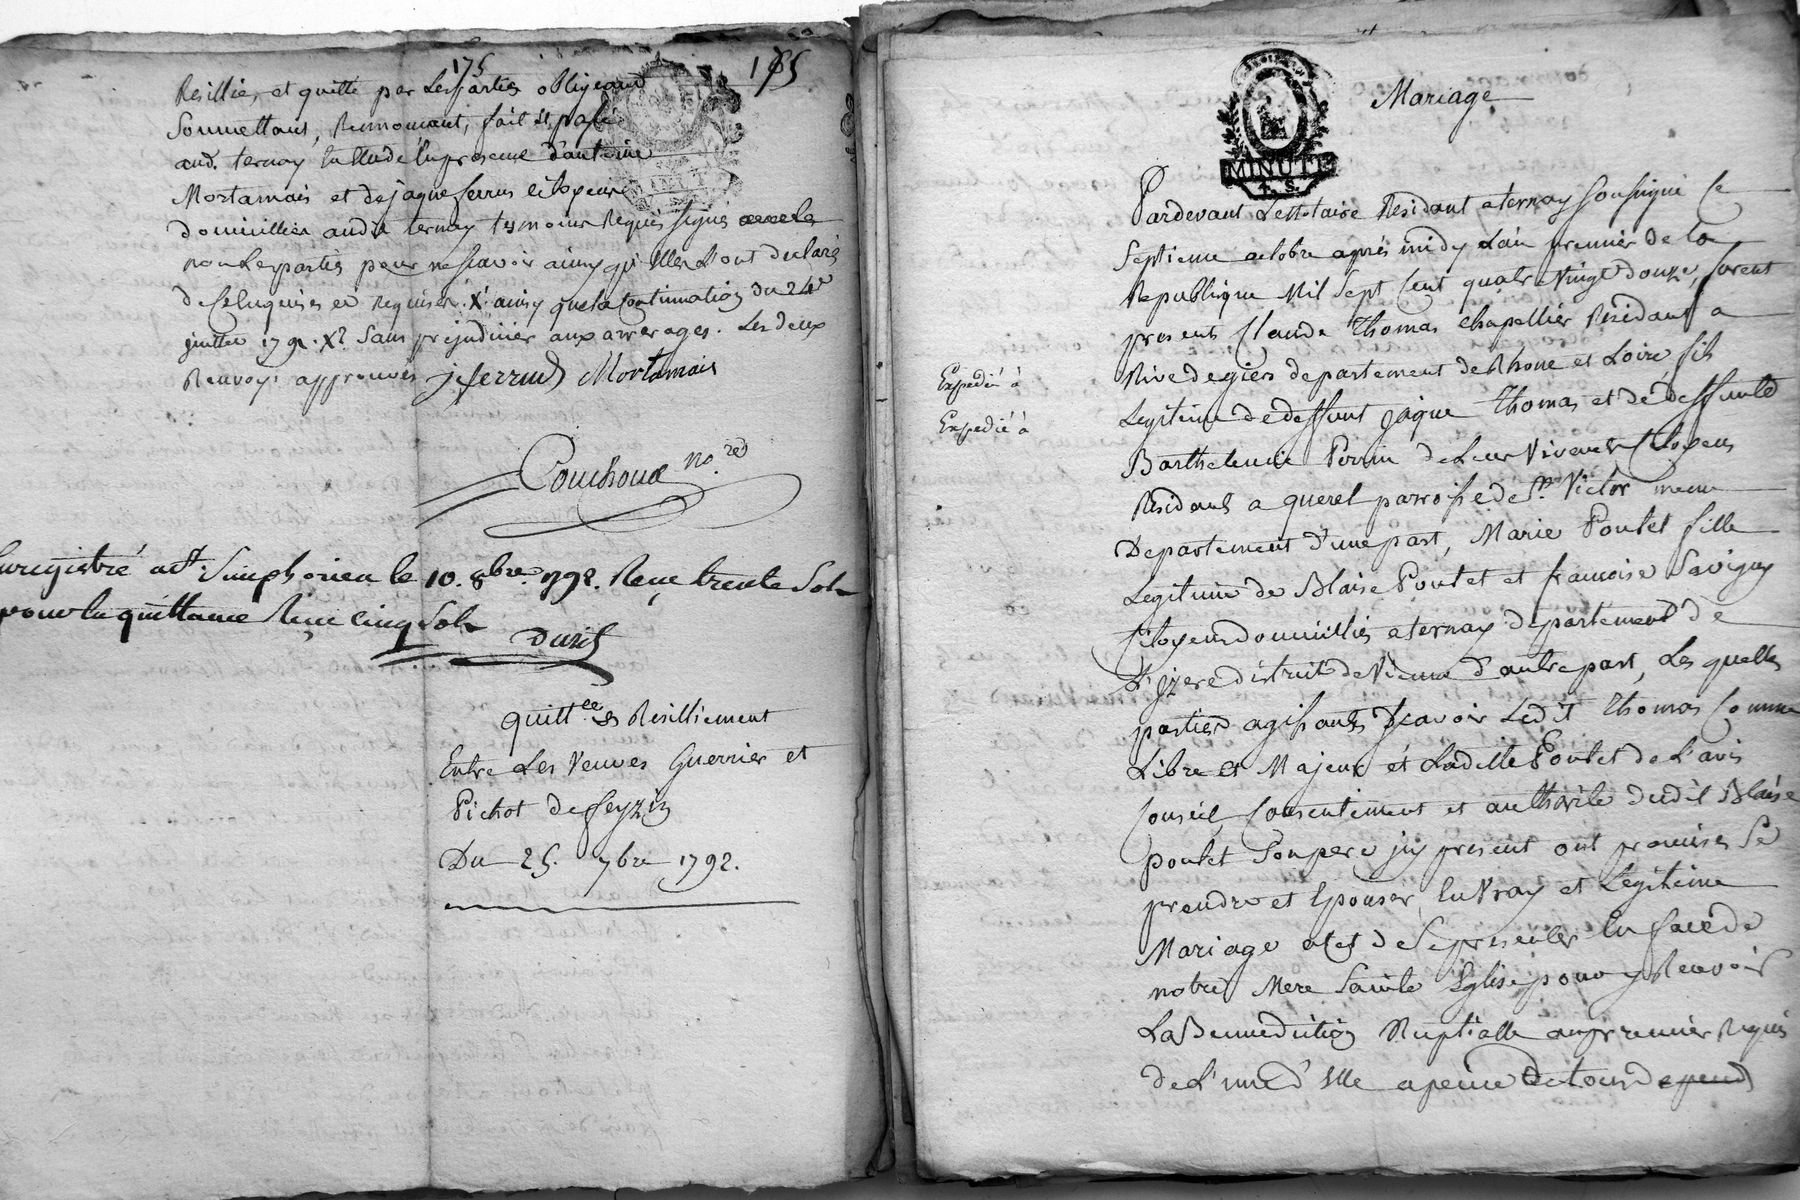 175
Resillié, et quitté par Les parties obligeant
Soumettant, Renonçant, fait et passé
aud. ternay En Etude En presence d'antoine
Mortamais et de jaque ferrus citoyens
domicilliés audit ternay temoins Requis signés
non Les parties pour ne scavoir ainsy qu'Elles L'ont declaré
de Ce Enquises et Requises. X. ainsy que la Continuation du 24e
juillet 179 . X? Sans prejudicier aux arrerages. Les deux
Renvoy: approuvés j ferrus Mortamais
Couchoud no.re
Enregistré a st. Simphorien le 10. 8bre 1792. Reçu trente Sols
pour la quittance Reçu cinq Sols
quitt.ce et Resilliement
Entre Les Veuves Guerrier et
Pichot de feyzin
Du 25. 7bre 1792.
MINUTE
Mariage
Expedié à
Expedié à
Pardevant Le Notaire Residant a ternay soussigné Ce
Septieme octobre après midy L'an premier de La
Republique Mil Sept Cent quatre Vingt douze, furent
presents Claude Thomas chapellier Residant a
Rive de giers departement de Rhone et Loire, fils
Legitime de deffunt jaque Thomas et de deffunte
Barthelemie Perrin de Leur Vivant Citoyens
Residants a querel parroisse de St. Victor meme
Departement d'une part, Marie Poulet fille
Legitime de Blaise Poulet et francoise Savigny
Citoyens domicilliés a ternay departement de
L'jzere district de Vienne d'autre part, Les quelles
parties agissants scavoir Ledit Thomas Comme
Libre et Majeur et Ladite Poulet de L'avis
Conseil, Consentement et authorité dudit Blaise
poulet Son pere jcy present ont promises Se
prendre et Epouser En Vray et Legitime
Mariage et de Se presenter En face de
notre Mere Sainte Eglise pour y Recevoir
La Bennediction Nuptialle au premier Requis
de L'une d'Elle a peine de tous depend